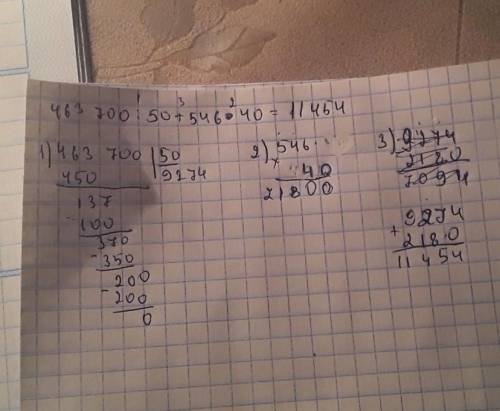 1 3 2
463 700 : 50 + 546 • 40 = 11454
1) 463 700 | 50
450 | 9274
137
- 100
370
- 350
200
- 200
0
2) 546
× 40
21800
3) 9274
2180
7094
9274
+ 2180
11454